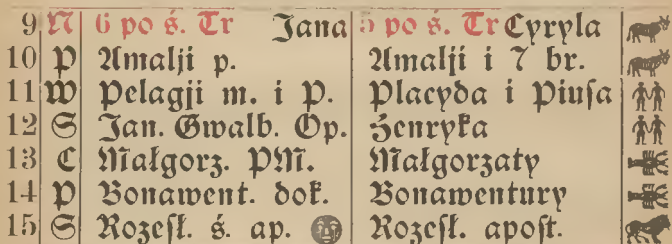 9 N 6 po ś. Tr Jana 5 po ś. Tr Cyryla
10 P Amalji p. Amalji i 7 br.
11 W Pelagji m. i P. Placyda i Piusa
12 S Jan. Gwalb. Op. Henryka
13 C Małgorz. PM. Małgorzaty
14 P Bonawent. dok. Bonawentury
15 S Rozesł. ś. ap. Rozesł. apost.